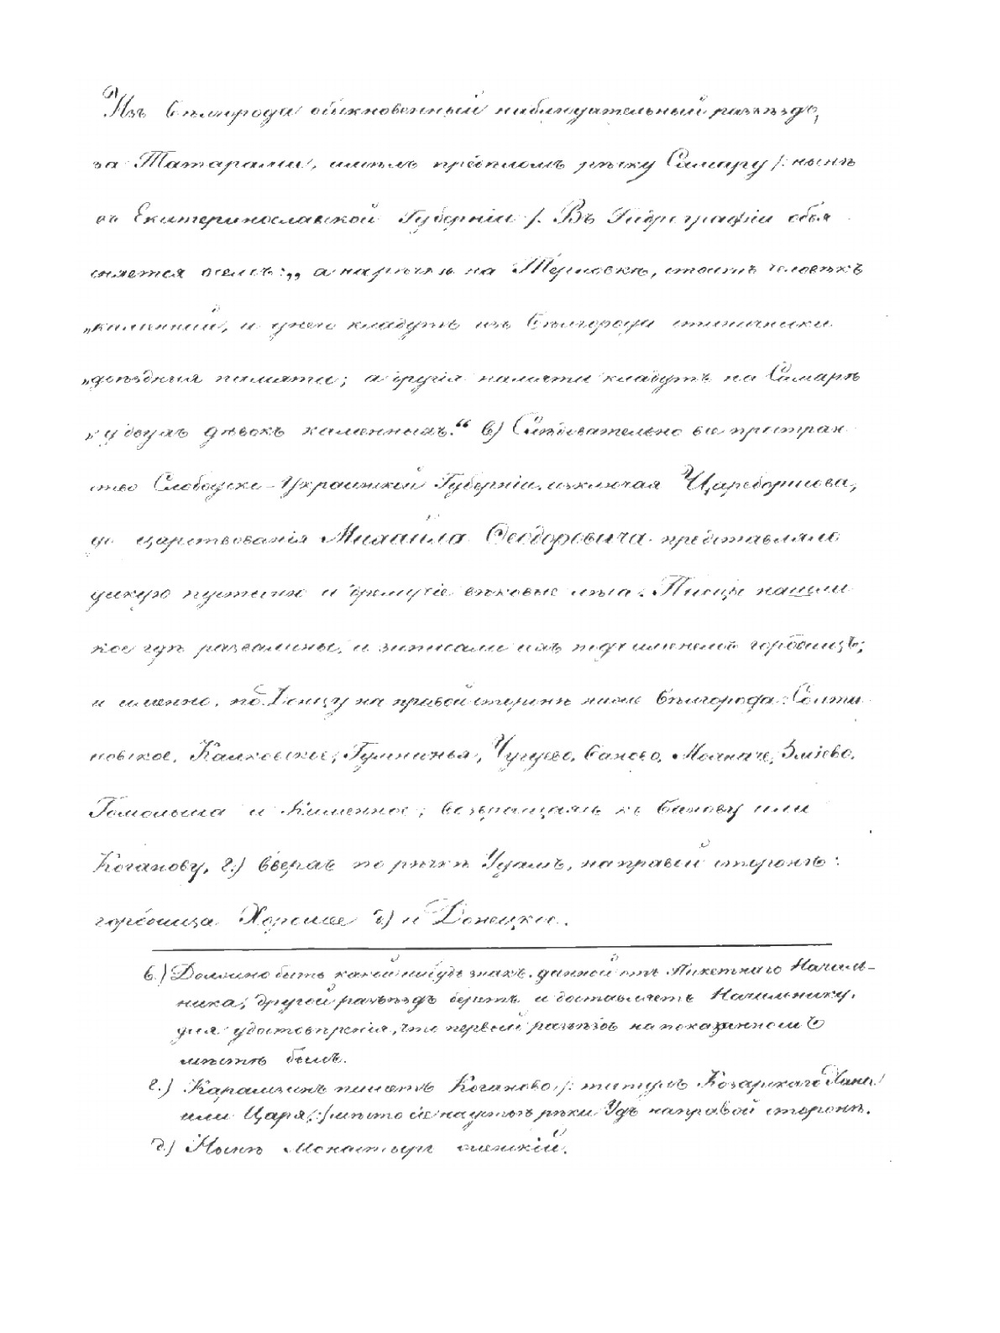 Изъ Бѣлгорода обыкновенный наблюдательный разъѣздъ,
за Татарами, имѣлъ предѣломъ рѣку Самару /: нынѣ
въ Екатеринославской Губерніи /. Въ Гидрографіи объя
сняется о семъ: „а на рѣчкѣ на Терновкѣ, стоитъ человѣкъ
„каменный, и у него кладутъ изъ Бѣлгорода станичники
„доѣздныя памяти; а другія памяти кладутъ на Самарѣ
„у двухъ дѣвокъ каменныхъ.“ в) Слѣдовательно все простран
ство Слободско-Украинской Губерніи, изключая Цареборисова,
до царствованія Михаила Ѳеодоровича представляло
дикую пустыню и дремучіе вѣковые лѣса. Писцы нашли
кое гдѣ развалины, и записали ихъ подъ именемъ городищъ;
и именно, по Донцу на правой сторонѣ ниже Бѣлгорода: Салты
новское, Колковское, Гумнинья, Чугуево, Баново, Мохначе, Змѣево,
Гомольша и Каменное; возвращаясь къ Банову или
Коганову, г.) вверхъ по рѣчкѣ Удамъ, на правой сторонѣ:
городища Хорошее д) и Донецкое.
в.) Должно быть какой нибудь знакъ, данной отъ Пикетнаго Началь-
ника; другой разъѣздъ беретъ и доставляетъ Начальнику,
для удостовѣренія, что первый разъѣздъ на показанномъ
мѣстѣ былъ.
г.) Карамзинъ пишетъ Коганово, /: титулъ Козарскаго Хана
или Царя /:/ мѣсто сіе на устьѣ рѣки Удъ на правой сторонѣ.
д.) Нынѣ Монастырь